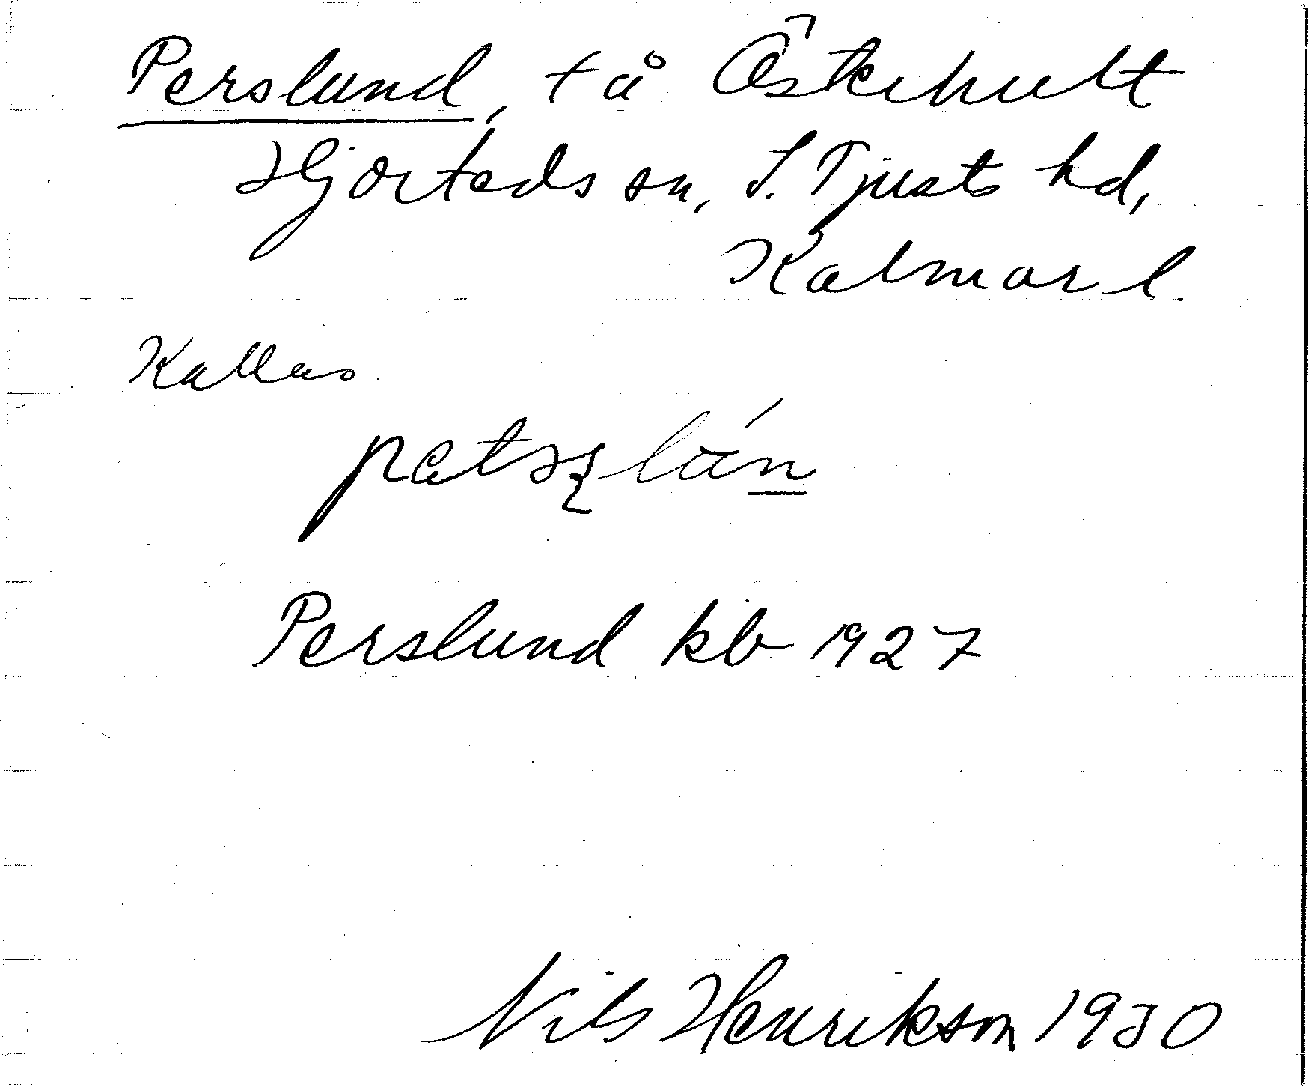 Perslund, t å Östehult
Hjorteds sn, S. Tjusts hd,
Kalmar l.
Kallas
Perslund kb 1927
Nils Henrikson 1930